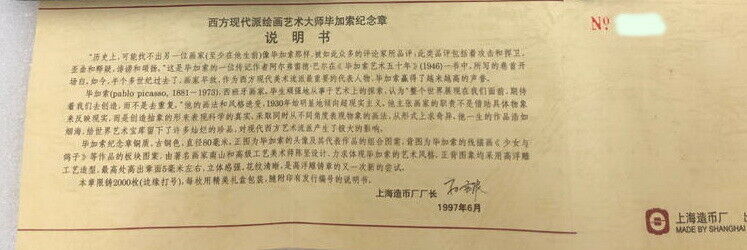 西方现代派绘画艺术大师毕加索纪念章
说明书
"历史上,可能找不出另一位画家(至少在他生前)像毕加索那样,被如此众多的评论家所品评;此类品评包括着攻击和捍卫,
歪曲和释疑,诽谤和颂扬。"这是毕加索的一位传记作者阿尔弗雷德·巴尔在《毕加索艺术五十年》(1946)一书中,所写的卷首开
场白。如今,半个多世纪过去了,画家早故,作为西方现代美术流派最重要的代表人物,毕加索赢得了越来越高的声誉。
毕加索(pablo picasso, 1881—1973),西班牙画家,毕生顽强地从事于艺术上的探索,认为"整个世界展现在我们面前,期待
着我们去创造,而不是去重复。"他的画法和风格迭变,1930年始明显地倾向超现实主义,他主张画家的职责不是借助具体物象
来反映现实,而是创造抽象的形来表现科学的真实,采取同时从不同角度表现物象的画法,从形式上求奇异,他一生的作品浩如
烟海,给世界艺术宝库留下了许多灿烂的珍品,对现代西方艺术流派产生了极大的影响。
毕加索纪念章铜质,古铜色,直径80毫米,正图为毕加索的头像及其代表作品的组合图案;背图为毕加索的线描画《少女与
鸽子》等作品的板块图案,由著名画家南山和高级工艺美术师陈坚设计,力求体现毕加索的艺术风格,正背图象均采用高浮雕
工艺造型,最高处高出章面5毫米左右,立体感强,花纹清晰,是高浮雕铸章的又一次新的尝试。
本章限铸2000枚(边缘打号),每枚用精美礼盒包装,随附印有发行编号的说明书。
上海造币厂厂长
1997年6月
№
上海造币厂
MADE BY SHANGHAI